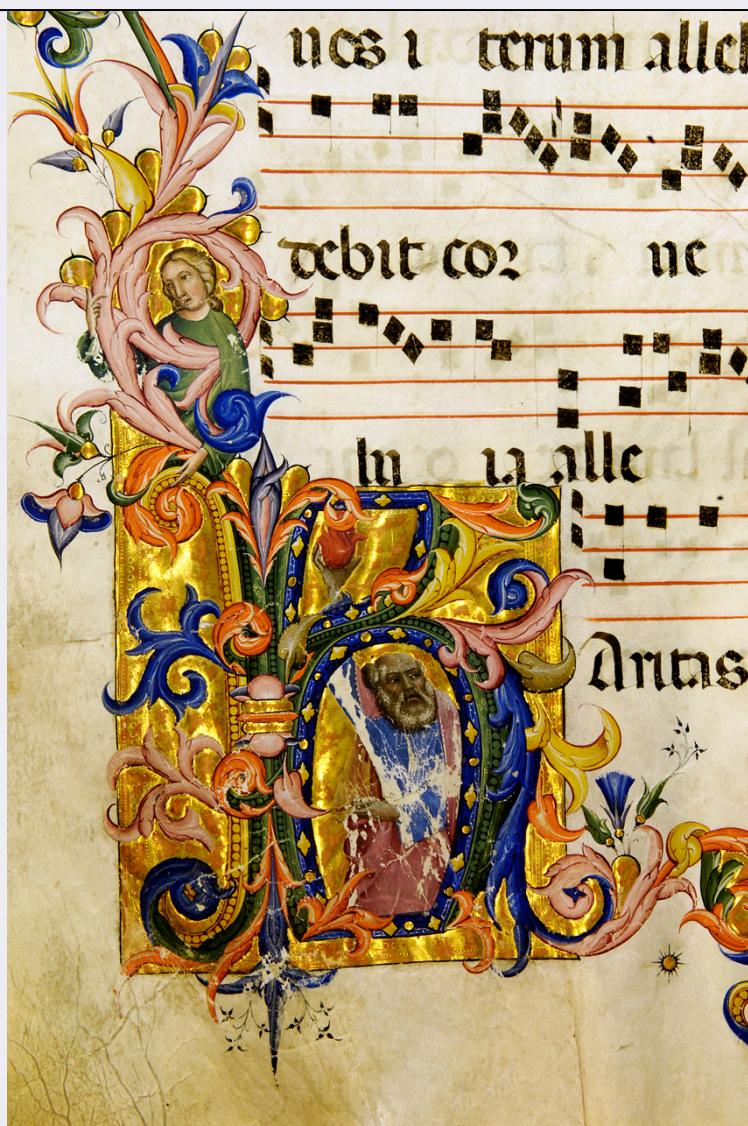 uos i terum allel
debit cor ne
ın ıa alle
Aritas